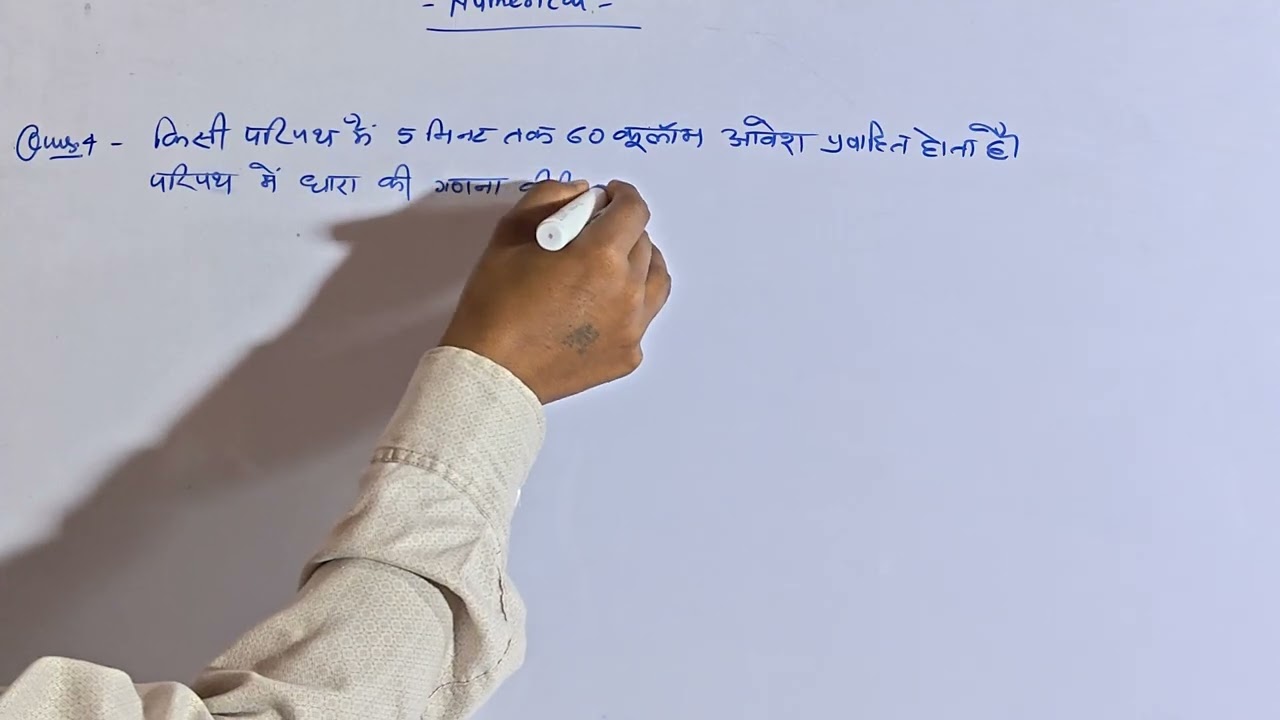 - Numerical -
Ques 4 - किसी परिपथ में 5 मिनट तक 60 कूलॉम आवेश प्रवाहित होता है।
परिपथ में धारा की गणना